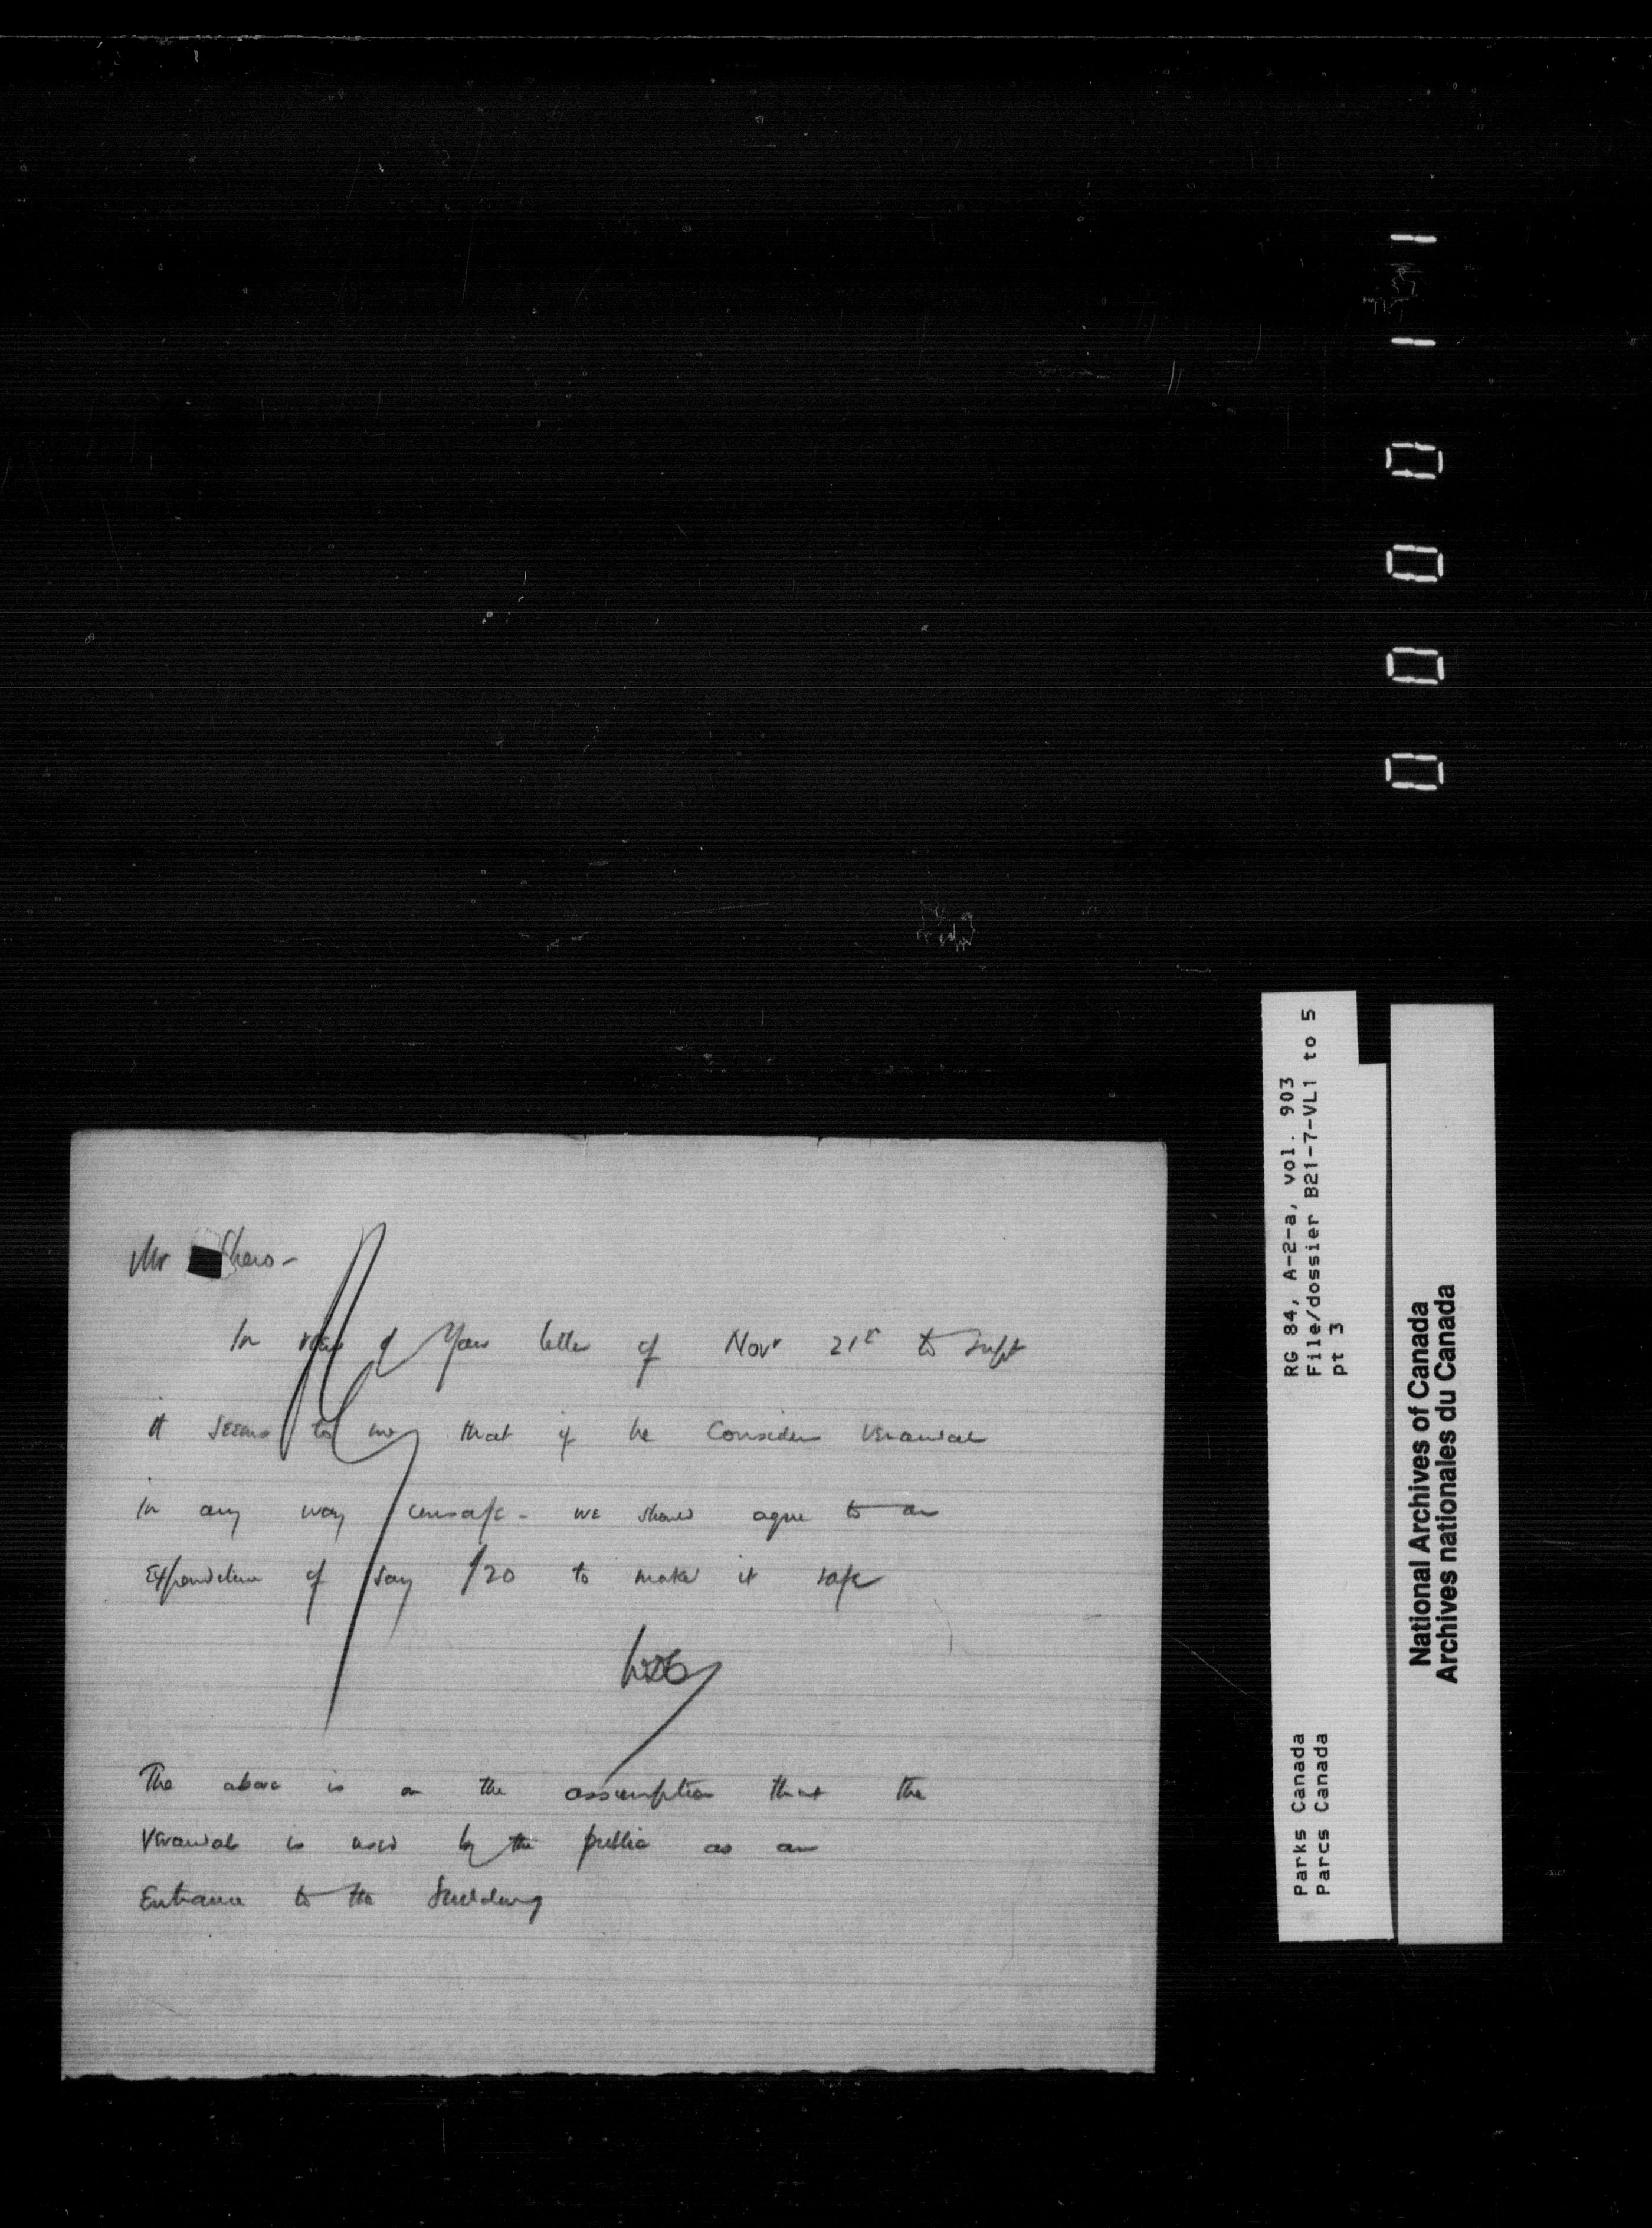 Mr
In view of your letter of Novr 21st to Supt
it seems to me that if he considers verandah
in any way unsafe - we should agree to an
Expenditure of say $20 to make it safe
The above is on the assumption that the
Verandah is used by the public as an
Entrance to the Building
RG 84, A-2-a, vol. 903
File/dossier B21-7-VL1 to 5
pt 3
Parks Canada
Parcs Canada
National Archives of Canada
Archives nationales du Canada
000011